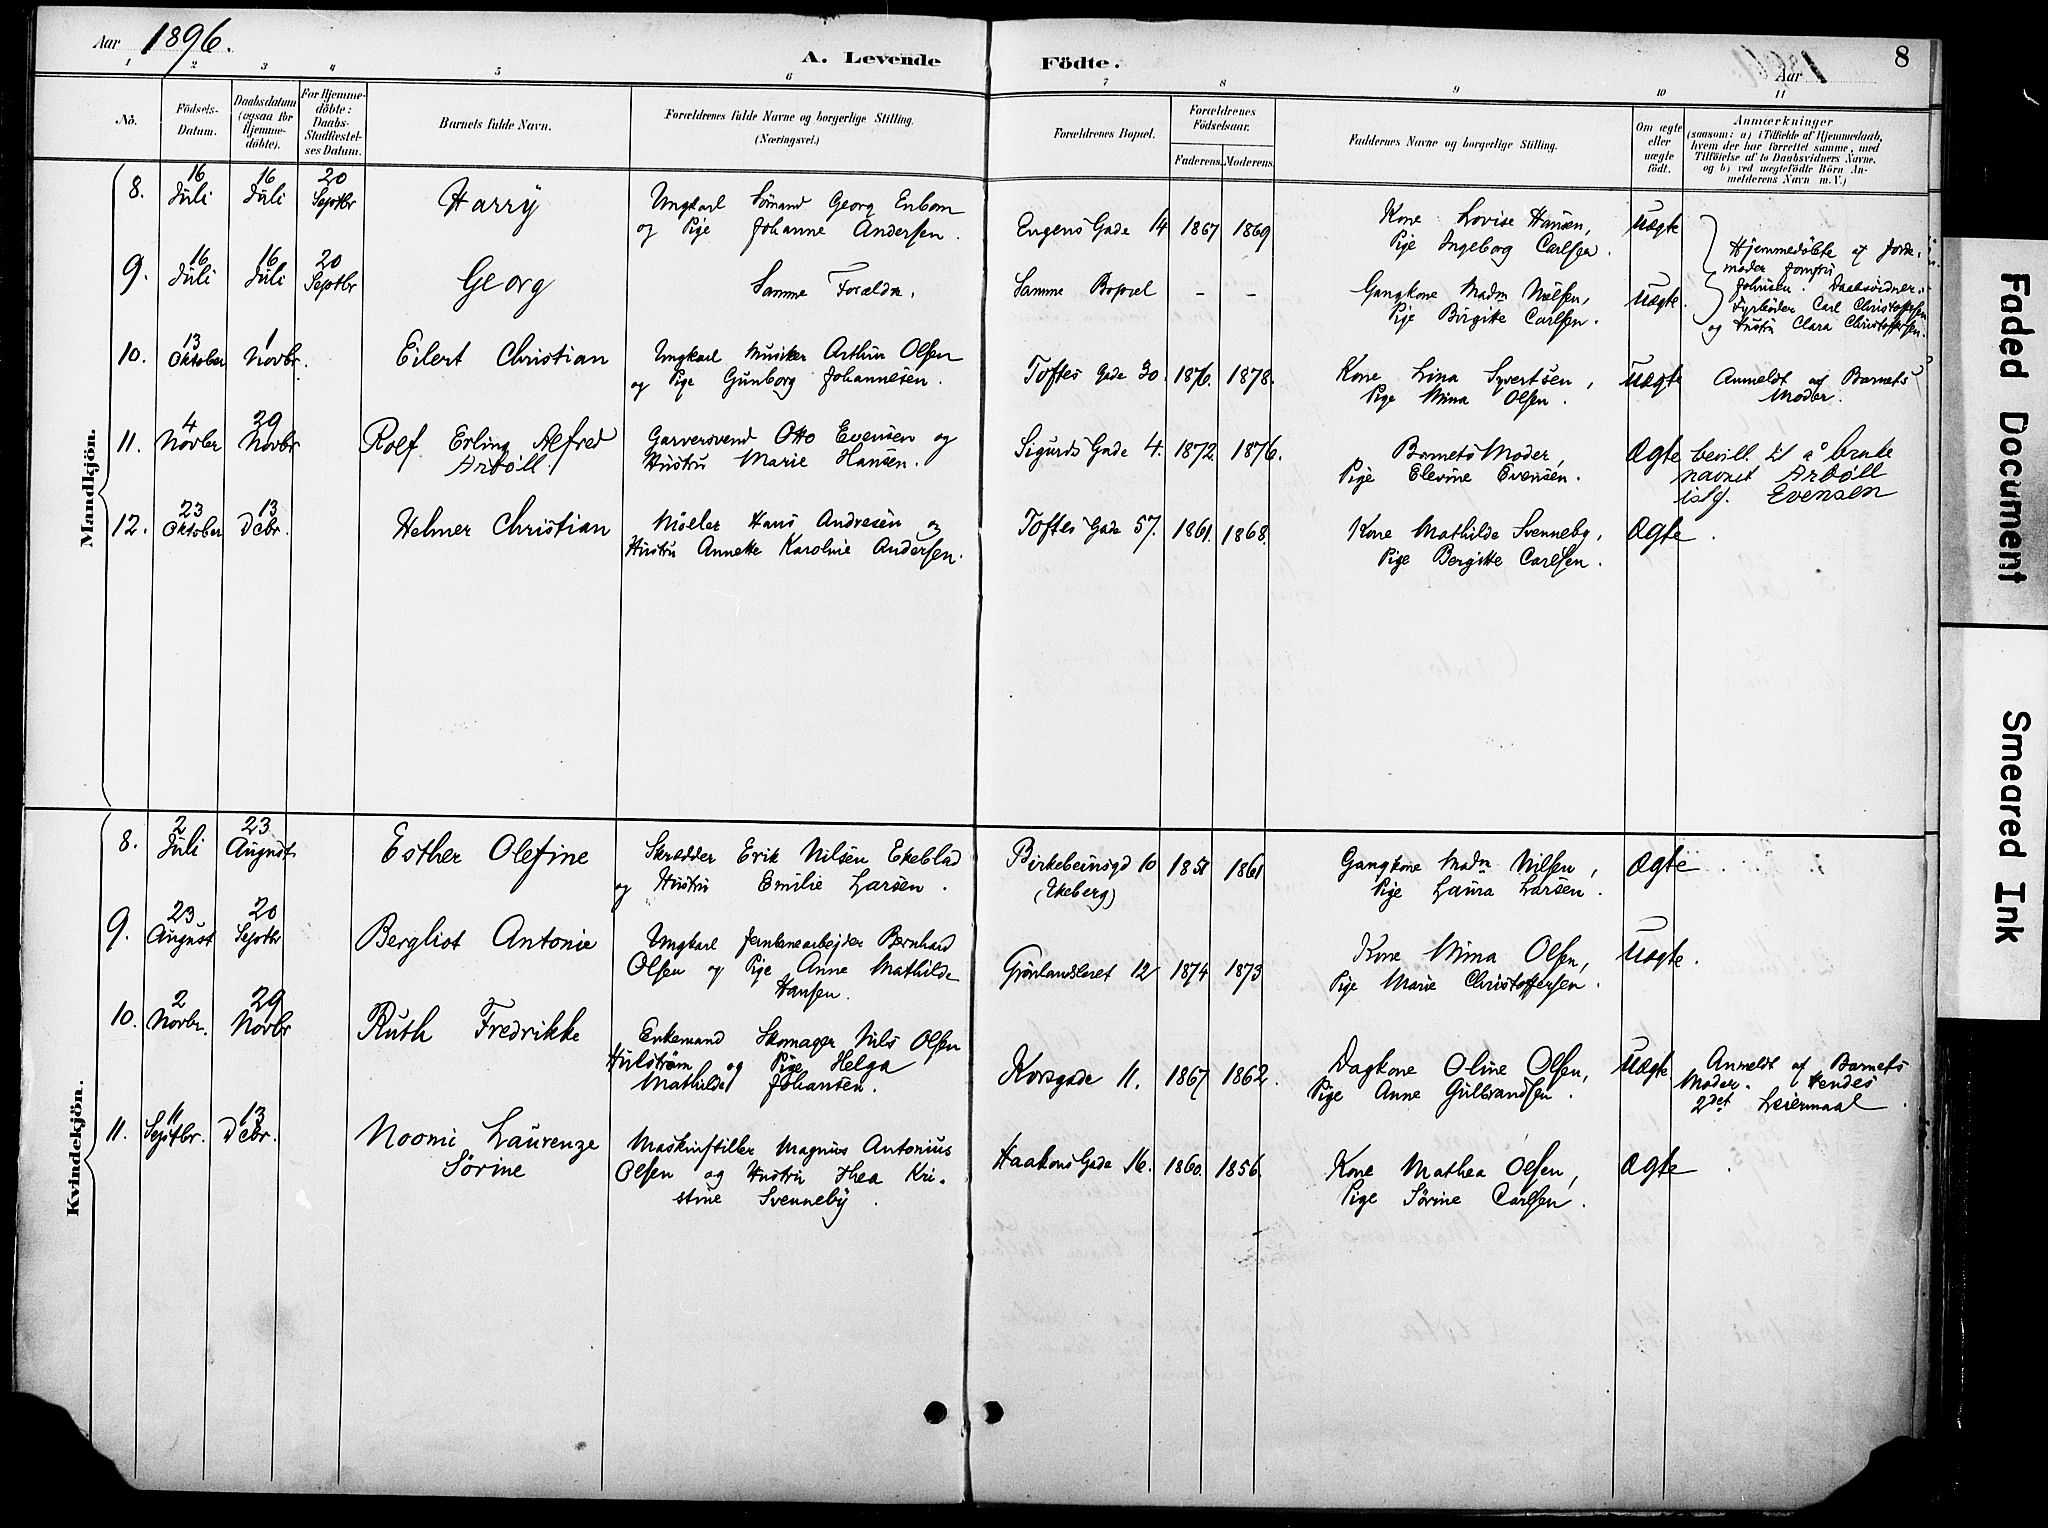 Aar 1896.
A. Levende Födte.
8
Aar 1
1 2 3 4 5 6 7 8 9 10 11
No.
Födsels-Datum.
Daabsdatum (ogsaa for Hjemme-döbte).
For Hjemme-döbte: Daabs-Stadfæstel-ses Datum.
Barnets fulde Navn.
Forældrenes fulde Navne og borgerlige Stilling. (Næringsvei.)
Forældrenes Bopæl.
Forældrenes Födselsaar.
Faderens. Moderens.
Faddernes Navne og borgerlige Stilling.
Om ægte eller uægte födt.
Anmærkninger
(saasom: a) i Tilfælde af Hjemmedaab,
hvem der har forrettet samme, med
Tilföielse af to Daabsvidners Navne.
og b) ved uægtefödte Börn An-
melderens Navn m.V.)
Mandkjön.
8. 16 Juli 16 Juli 20 Septbr Harry
Ungkarl Sömand Georg Enbom
og Pige Johanne Andersen.
Engens Gade 14 1867 1869
Kone Lovise Hansen,
Pige Ingeborg Carlsen.
Uægte
9. 16 Juli 16 Juli 20 Septbr Georg
Samme Forældre.
Samme Bopæl - -
Gangkone Madm Nilsen,
Pige Birgitte Carlsen.
Uægte.
Hjemmedöbte af Jorde-
moder
Johnsen. Daabsvidner:
Fyrböder Carl Christoffersen
og Hustru Clara Christoffersen.
10. 13 Oktober 1 Novbr. Eilert Christian
Ungkarl Musiker Arthur Olsen
og Pige Gunborg Johannesen.
Toftes Gade 30. 1876. 1878.
Kone Lina Syvertsen,
Pige Mina Olsen.
Uægte
Anmeldt af Barnets
Moder.
11. 4 Novbr 29 Novbr Rolf Erling Alfred
Arböll.
Garversvend Otto Evensen og
Hustru Marie Hansen.
Sigurds Gade 4. 1872. 1876.
Barnets Moder,
Pige Elevine Evensen.
Ægte
bevill. til å bruke
navnet Arböll
istf. Evensen
12. 23 Oktober 13 Debr. Helmer Christian
Möller Hans Andresen og
Hustru Annette Karoline Andersen.
Toftes Gade 57. 1861. 1868.
Kone Mathilde Svenneby,
Pige Bergitte Carlsen.
Ægte.
Kvindekjön.
8. 2 Juli 23 August Esther Olefine
Skrædder Erik Nilsen Ekeblad
og Hustru Emilie Larsen.
Birkebeinsgd 10 1851 1861
(Ekeberg)
Gangkone Madm Nilsen,
Pige Laura Larsen.
Ægte.
9. 23 August 20 Septbr Bergliot Antonie
Ungkarl Jernbanearbejder Bernhard
Olsen og Pige Anne Mathilde
Hansen.
Grönlandsleret 12 1874 1873
Kone Mina Olsen,
Pige Marie Christoffersen.
Uægte.
10. 2 Novbr. 29 Novbr Ruth Fredrikke
Enkemand Skomager Nils Olsen
Hulström og Pige Helga
Mathilde Johansen.
Korsgade 11. 1867 1862.
Dagkone Oline Olsen,
Pige Anne Gulbrandsen.
Uægte
Anmeldt af Barnets
Moder. Hendes
2det Leiermaal.
11. 11 Septbr. 13 Debr. Noomi Laurenze
Sörine
Maskinstiller Magnus Antonius
Olsen og Hustru Thea Kri-
stine Svenneby.
Haakons Gade 16. 1860. 1856.
Kone Mathea Olsen,
Pige Sörine Carlsen.
Ægte.
Faded Document
Smeared Ink